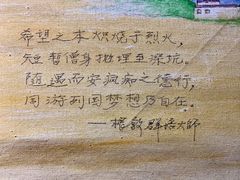 希望之本炽烧于烈火，
短暂僧身推埋至深坑。
随遇而安疯痴之德行，
周游列国梦想乃自在。
——根敦群培大师